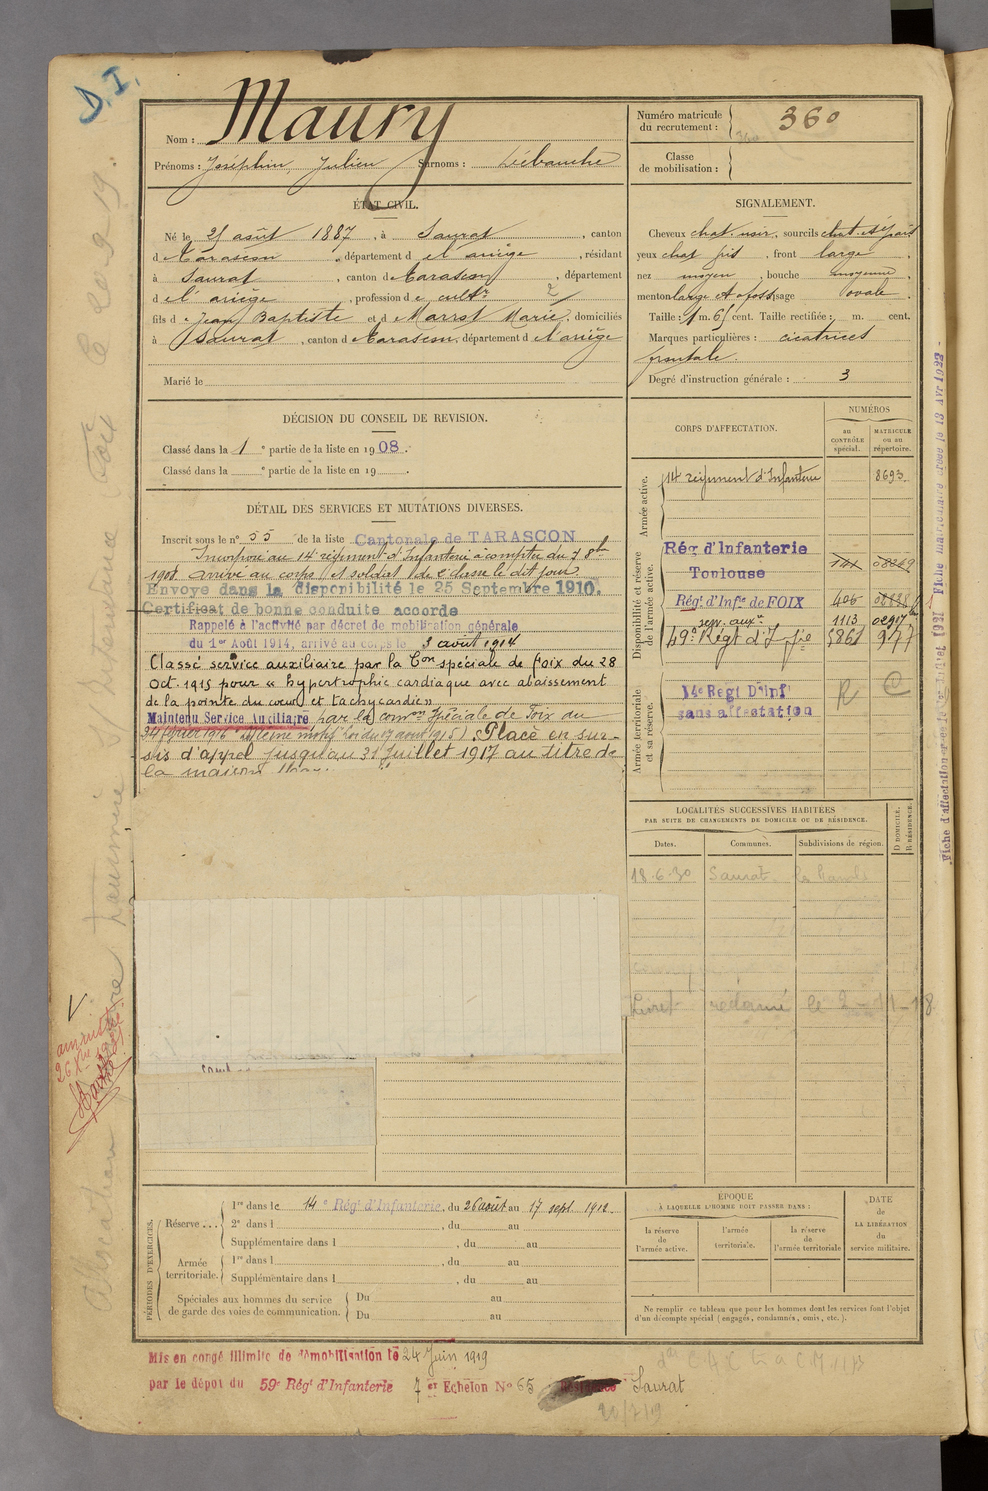 D.I.
Nom : Maury
Prénoms : Joséphin, Julien Surnoms : Débauche
Numéro matricule du recrutement : 360
360
Classe de mobilisation :
ÉTAT CIVIL.
Né le 25 août 1887, à Saurat, canton
de Tarascon, département de l'ariège, résidant
à Saurat, canton de Tarascon, département
de l'ariège, profession de cultr 2
fils de Jean Baptiste et de Marrot Marie, domiciliés
à Saurat, canton de Tarascon, département de l'ariège
Marié le
SIGNALEMENT.
Cheveux chat. noir, sourcils chat.
yeux chat gris, front large
nez moyen, bouche moyenne,
menton large et à foss, visage ovale.
Taille : 1 m. 65 cent. Taille rectifiée : m. cent.
Marques particulières : cicatrices
frontale.
Degré d'instruction générale : 3
DÉCISION DU CONSEIL DE REVISION.
Classé dans la 1e partie de la liste en 1908.
Classé dans la e partie de la liste en 19 .
DÉTAIL DES SERVICES ET MUTATIONS DIVERSES.
Inscrit sous le n° 55 de la liste Cantonale de TARASCON
Incorporé au 14e régiment d'Infanterie à compter du 7 8bre
1908. Arrivé au corps et soldat de 2e classe le dit jour.
Envoyé dans la disponibilité le 25 Septembre 1910.
Certificat de bonne conduite accordé
Rappelé à l'activité par décret de mobilisation générale
du 1er Août 1914, arrivé au corps le 3 août 1914
Classé service auxiliaire par la Con spéciale de foix du 28
Oct. 1915 pour « hypertrophie cardiaque avec abaissement
de la pointe du cœur et tachycardie »
Maintenu Service Auxiliaire par la comon Spéciale de Foix du
février 1916 même motif loi du 17 août 1915). Placé en sur-
sis d'appel jusqu'au 31 Juillet 1917 au titre de
la maison
CORPS D'AFFECTATION.
NUMÉROS
au CONTRÔLE spécial.
MATRICULE ou au répertoire.
Armée active.
14e régiment d'Infanterie 8693
Disponibilité et réserve de l'armée active.
Rég. d'Infanterie
Toulouse 141 08849
Régt d'Infie de FOIX 406
serv. auxre 1113 02917
49e Régt d'Infie 5861 977
Armée territoriale et sa réserve.
14e Regt D'Inf R C
sans affectation
LOCALITÉS SUCCESSIVES HABITÉES
PAR SUITE DE CHANGEMENTS DE DOMICILE OU DE RÉSIDENCE.
Dates. Communes. Subdivisions de région. D DOMICILE. R RÉSIDENCE.
18-6-30 Saurat.
Livret réclamé le 2-11-18
PÉRIODES D'EXERCICES.
Réserve... 1re dans le 14e Régt d'Infanterie, du 26 août au 17 sept 1912
2e dans l , du au
Supplémentaire dans l , du au
Armée territoriale. 1re dans l , du au
Supplémentaire dans l , du au
Spéciales aux hommes du service de garde des voies de communication. Du au
Du au
ÉPOQUE
À LAQUELLE L'HOMME DOIT PASSER DANS :
la réserve de l'armée active.
l'armée territoriale.
la réserve de l'armée territoriale
DATE DE LA LIBÉRATION du service militaire.
Ne remplir ce tableau que pour les hommes dont les services font l'objet
d'un décompte spécial (engagés, condamnés, omis, etc.).
Mis en congé illimité de démobilisation le 24 Juin 1919
par le dépôt du 59e Régt d'Infanterie 7er Echelon N° 65 Résidence Saurat
Fiche d'affectation créée le 1er Juillet 1921 Fiche matriculaire créée le 13 Avr 1923